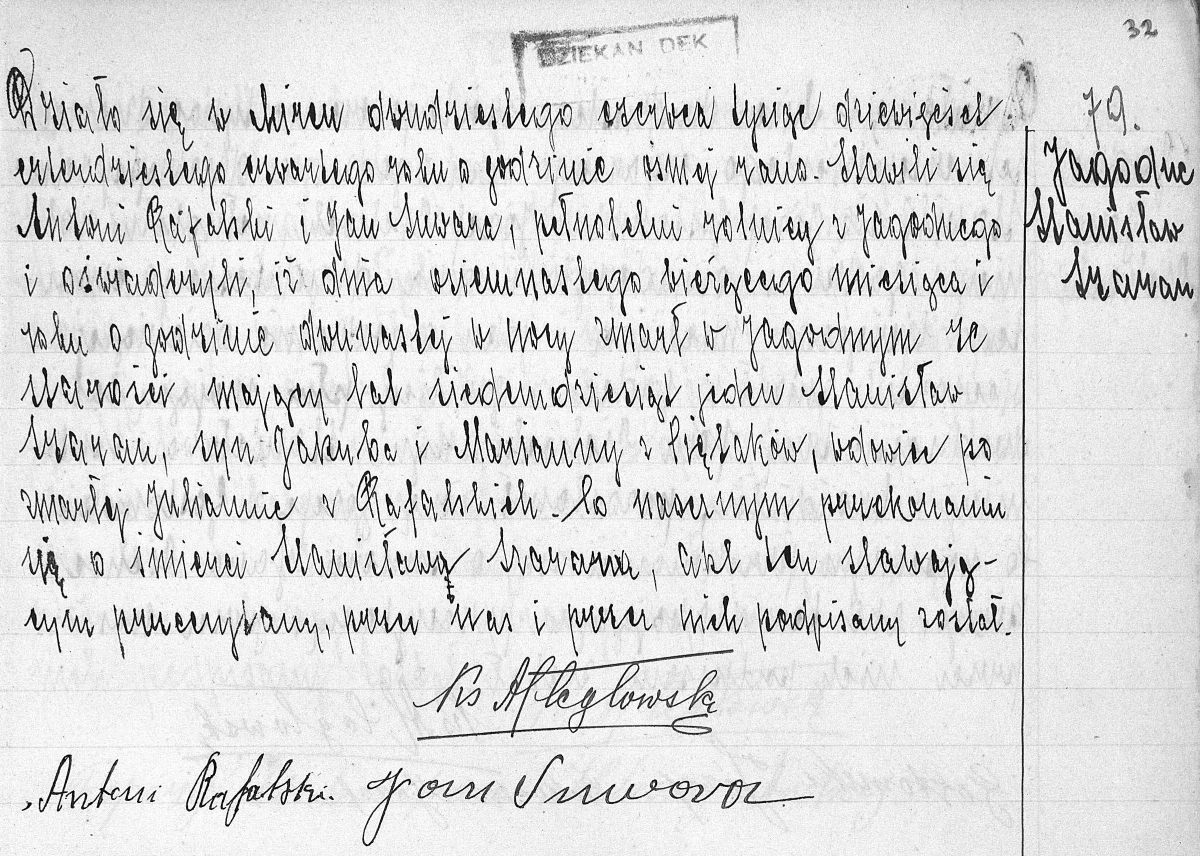 32
DZIEKAN DEK
79.
Jagodne
Stanisław
Szaran
Działo się w dwudziestego czerwca tysiąc dziewięćset
czterdziestego czwartego roku o godzinie ósmej rano. Stawili się
Antoni Rafalski i Jan Skwara, pełnoletni rolnicy z Jagodnego
i oświadczyli, iż dnia osiemnastego bieżącego miesiąca i
roku o godzinie dwunastej w nocy zmarł w Jagodnym ze
starości mający lat siedemdziesiąt jeden Stanisław
Szaran, syn Jakuba i Marianny z, wdowiec po
zmarłej Juliannie z Rafalskich. Po naocznym przekonaniu
się o śmierci Stanisława Szarana, akt ten stawają-
cym przeczytany, przez nas i przez nich podpisany został.
Ks
Antoni Rafalski. Jan